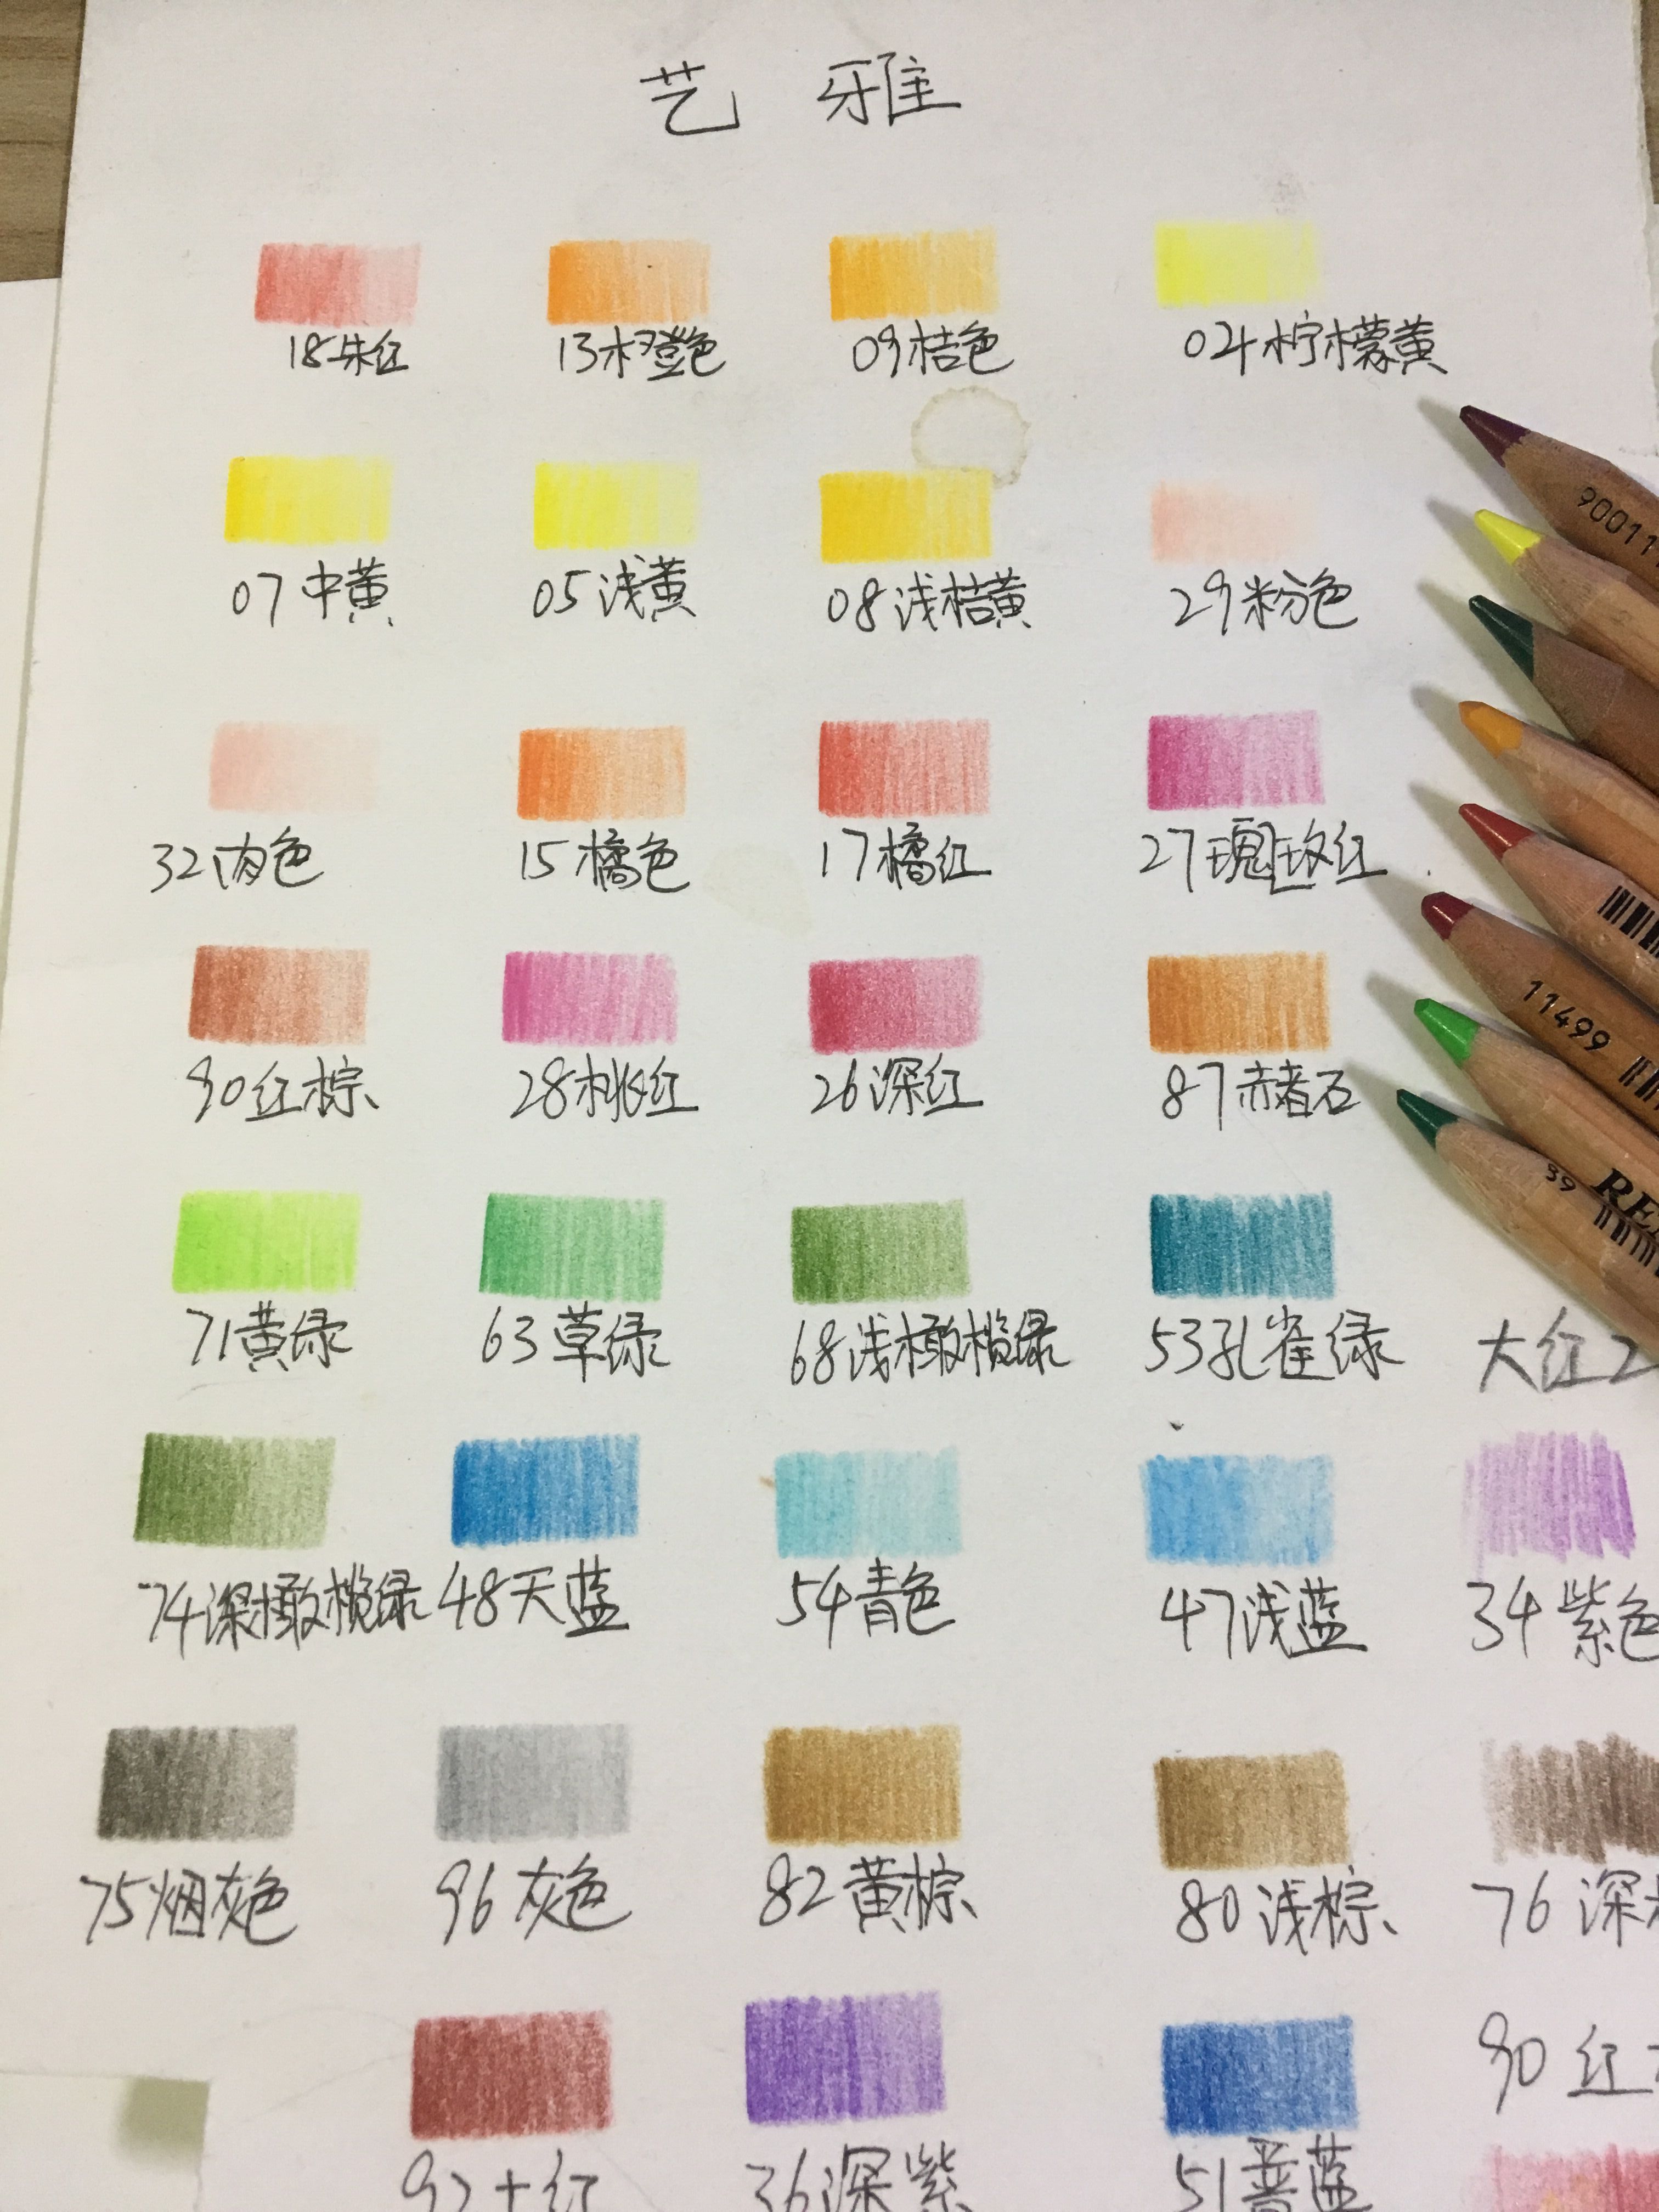 艺 雅
18朱红 13橙色 09桔色 02柠檬黄
07中黄 05浅黄 08浅桔黄 29粉色
90011
32肉色 15橘色 17橘红 27瑰玫红
11499
90红棕 28桃红 26深红 87赤赭石
39 RE
71黄绿 63草绿 68浅橄榄绿 53孔雀绿 大红2
74深橄榄绿 48天蓝 54青色 47浅蓝 34紫色
75烟灰色 96灰色 82黄棕 80浅棕 76深
90红
92土红 36深紫 51普蓝